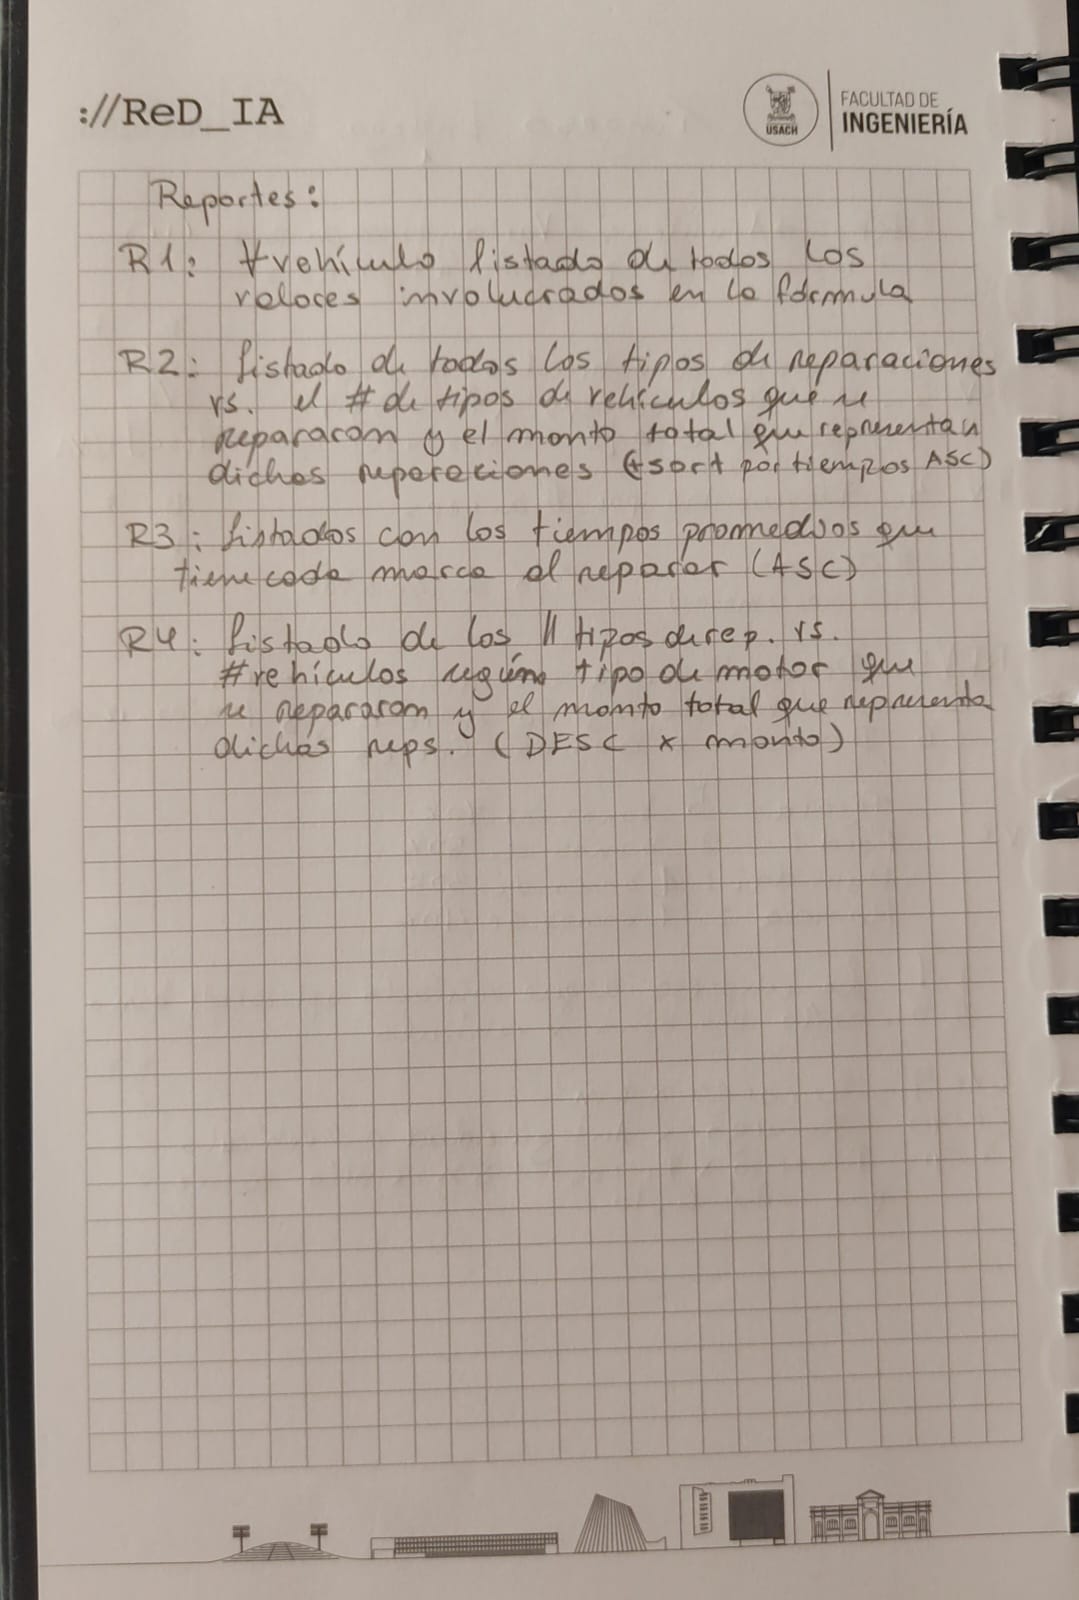 ://ReD_IA
USACH
FACULTAD DE
INGENIERÍA
Reportes:
R1: ∀vehículo listado de todos los
valores involucrados en la fórmula
R2: Listado de todos los tipos de reparaciones
vs. el # de tipos de vehículos que se
repararon y el monto total que representan
dichas reparaciones (+sort por tiempos ASC)
R3: Listados con los tiempos promedios que
tiene cada marca al reparar (ASC)
R4: Listado de los 11 tipos de rep. vs.
#vehículos según tipo de motor que
se repararon y el monto total que representa
dichas reps. (DESC x monto)